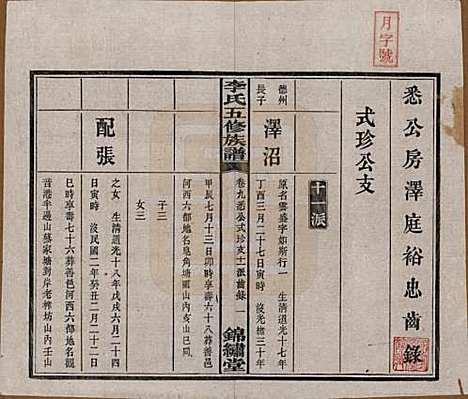 月字號
悉公房澤庭裕忠齒錄
式珍公支
十一派
德州
長子
澤沼
原名雲盛字如斯行一 生清道光十七年
丁酉三月二十七日寅時 沒光緒三十年
李氏五修族譜
卷九悉公式珍支十一派齒錄 一
錦繡堂
甲辰七月十三日卯時享壽六十八葬善邑
河西六都地名皂角塘園山內丑山未向
子三
女三
配張
之女 生清道光十八年戊戌六月二十四
日寅時 沒民國二年癸丑二月二十二日
時享壽七十六葬善邑河西六都地名觀
音港半邊山葛家塘到岸老榨坊山內壬山